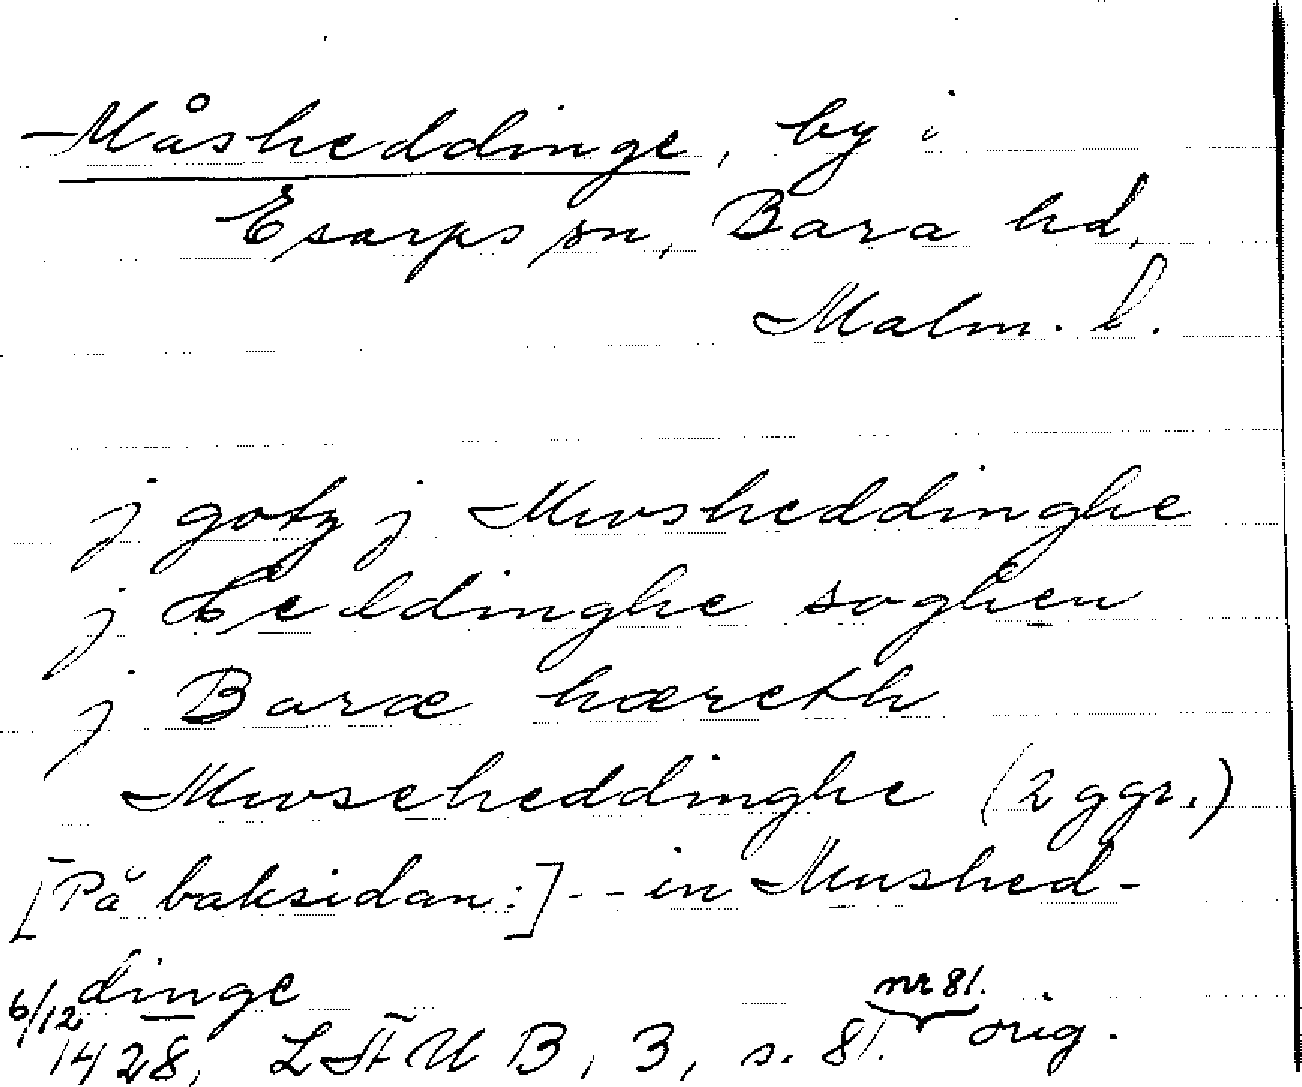 Måsheddinge, by i
Esarps sn, Bara hd,
Malm. l.
j gotz j Mwsheddinghe
j Heddinghe soghen
j Baræ hæreth
Mwseheddinghe (2 ggr.)
[På baksidan:] -- in Mushed-
dinge
nr 81.
6/12 1428, LÄUB, 3, s. 81. orig.